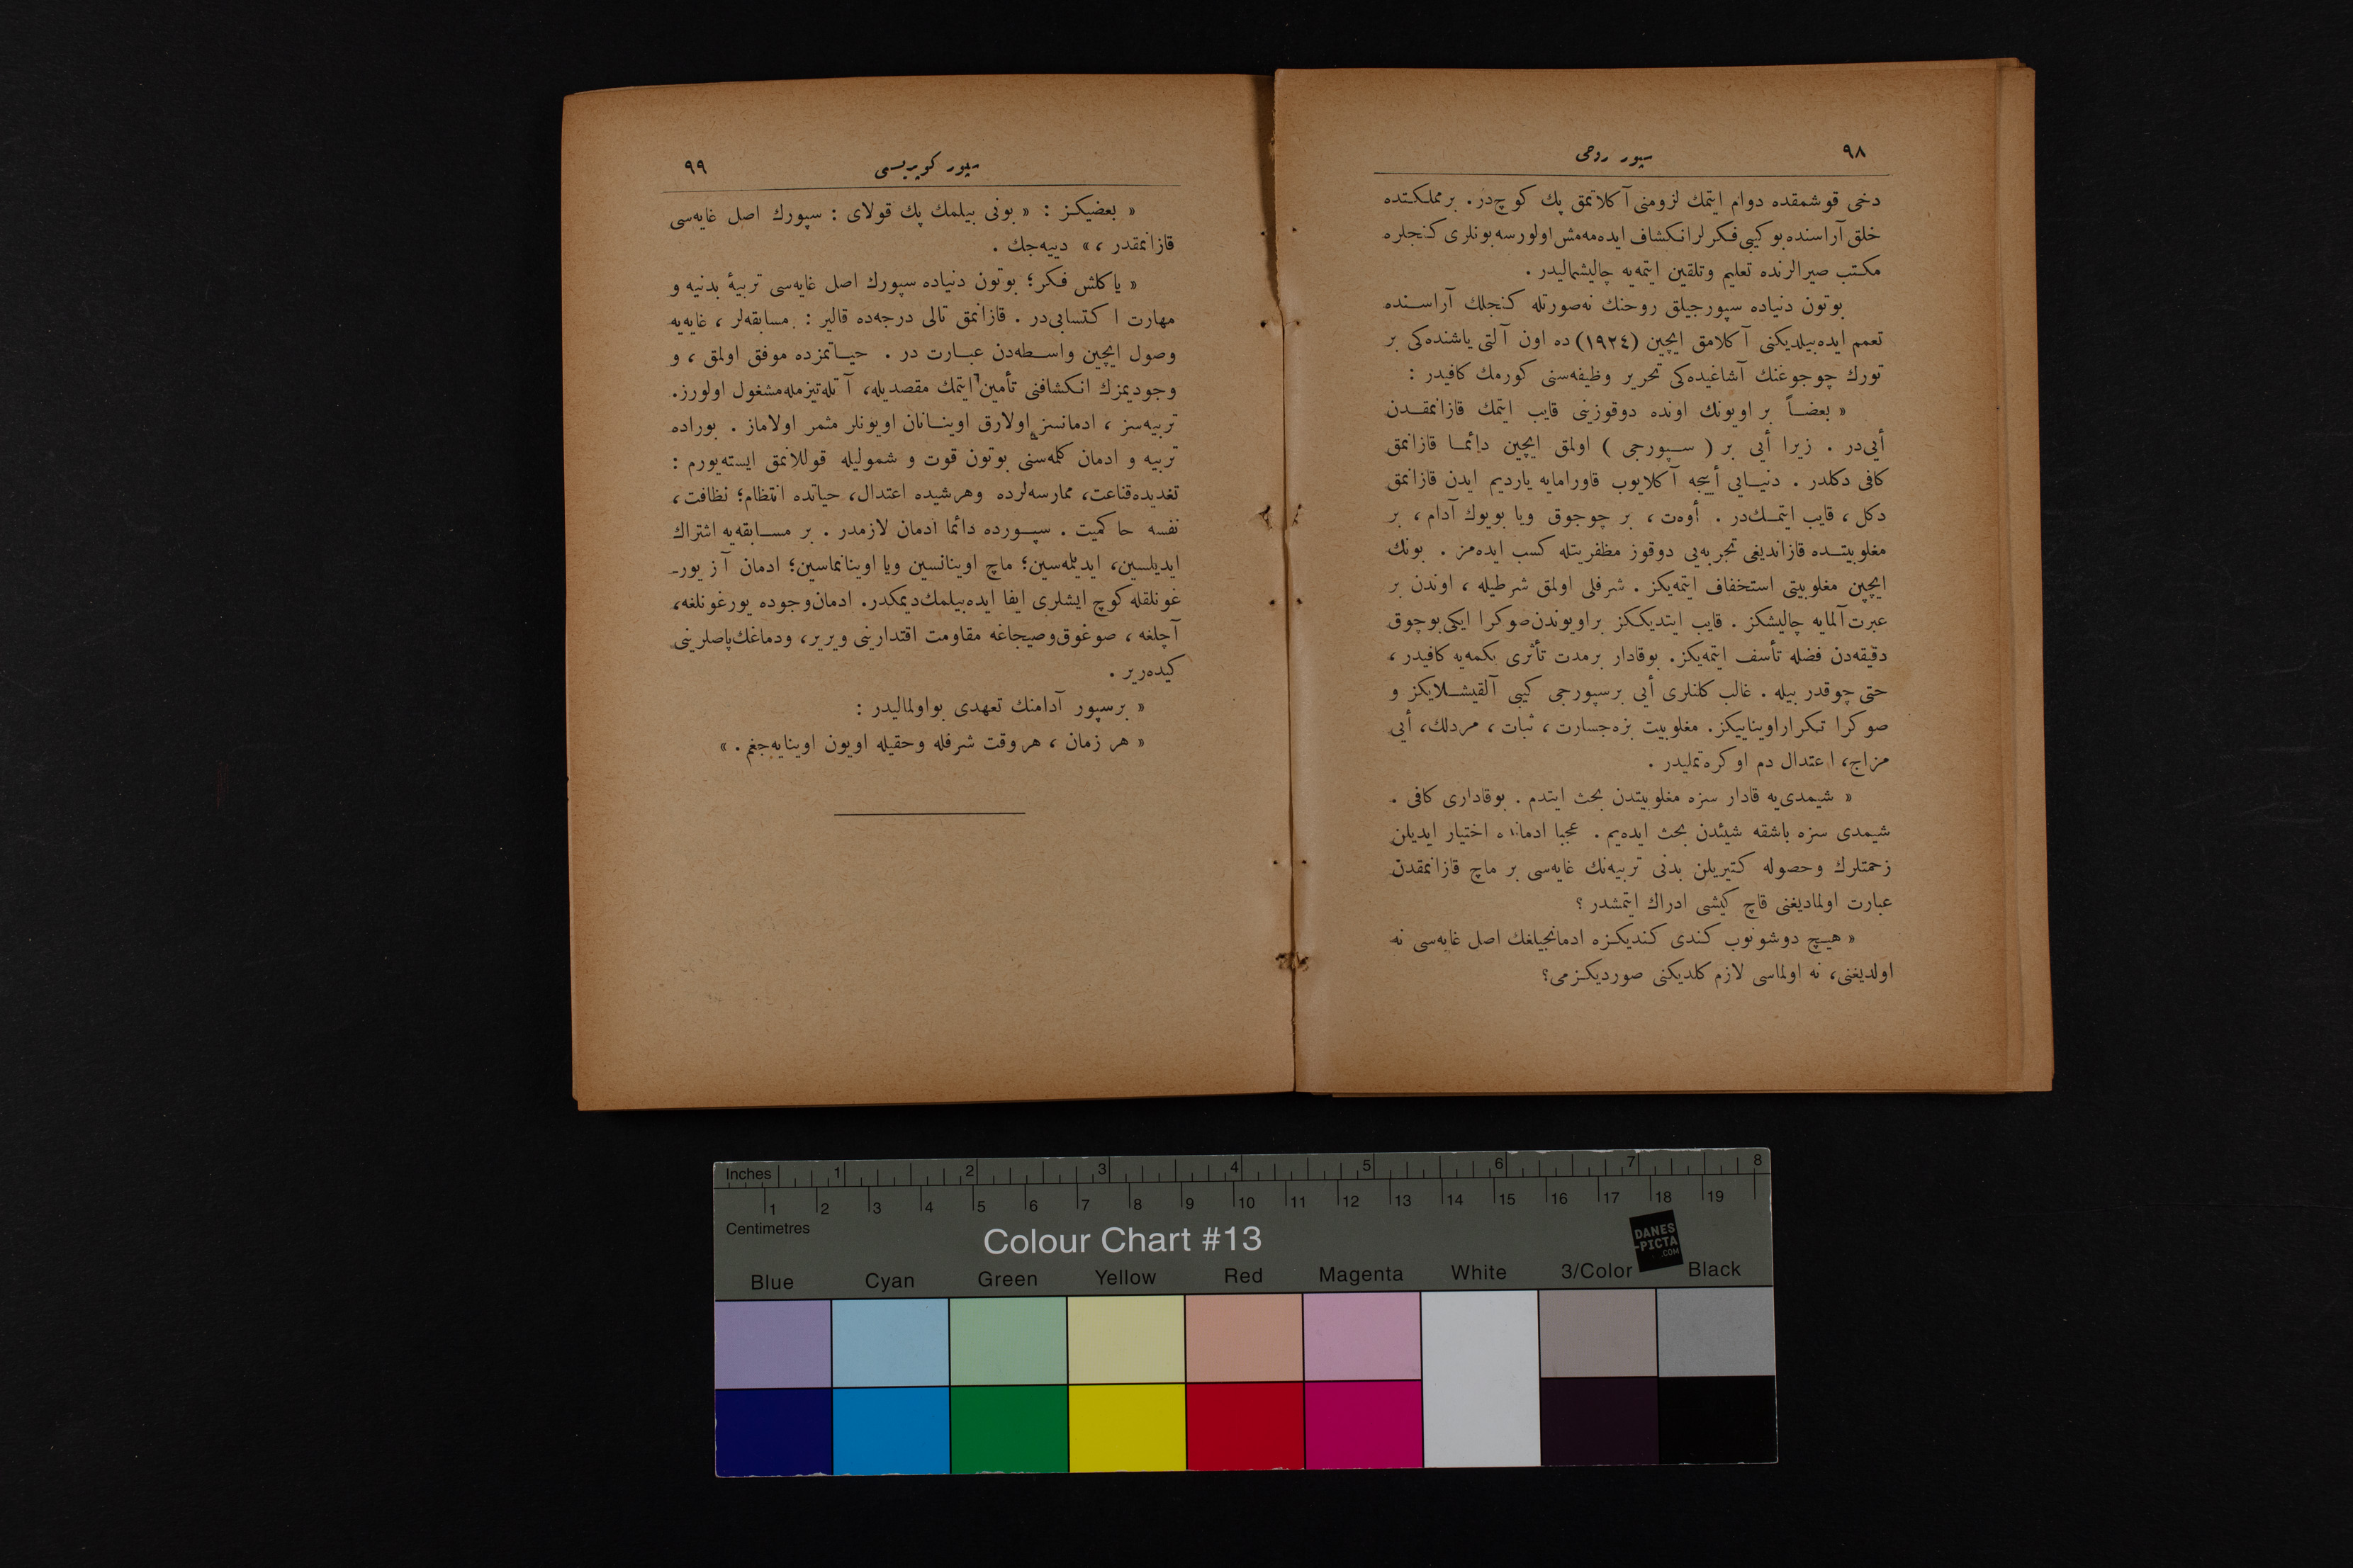 ٩٨
سپور روحی
دخی قوشمقده دوام ایتمك لزومنی آكلاتمق پك كوچ‌در. بر مملكتده
خلق آراسنده بو كیبی فكرلر انكشاف ایده‌مه‌مش اولورسه بونلری كنجلره
مكتب صیرالرنده تعلیم وتلقین ایتمه‌یه چالیشمالیدر .
بوتون دنیاده سپورجیلق روحنك نه‌صورتله كنجلك آراسنده
تعمم ایده‌بیلدیكنی آكلامق ایچین (١٩٢٤) ده اون آلتی یاشنده‌كی بر
تورك چوجوغنك آشاغیده‌كی تحریر وظیفه‌سنی كورمك كافیدر :
« بعضاً بر اویونك اونده دوقوزینی قایب ایتمك قازانمقدن
أیی‌در . زیرا أیی بر ( سپورجی ) اولمق ایچین دائما قازانمق
كافی دكلدر . دنیایی أییجه آكلایوب قاورامایه یاردیم ایدن قازانمق
دكل ، قایب ایتمك‌در . أوه‌ت ، بر چوجوق ویا بویوك آدام ، بر
مغلوبیتده قازاندیغی تجربه‌یی دوقوز مظفریتله كسب ایده‌مز . بونك
ایچین مغلوبیتی استخفاف ایتمه‌یكز . شرفلی اولمق شرطیله ، اوندن بر
عبرت آلمایه چالیشكز . قایب ایتدیككز بر اویوندن صوكرا ایكی بوچوق
دقیقه‌دن فضله تأسف ایتمه‌یكز. بوقادار بر مدت تأثری یكمه‌یه كافیدر ،
حتی چوقدر بیله . غالب كلنلری أیی بر سپورجی كیبی آلقیشلایكز و
صوكرا تكرار اوینایكز. مغلوبیت بزه جسارت ، ثبات ، مردلك، أیی
مزاج، اعتدال دم اوكره‌تملیدر .
« شیمدی‌یه قادار سزه مغلوبیتدن بحث ایتدم . بوقاداری كافی .
شیمدی سزه باشقه شیئدن بحث ایده‌یم . عجبا ادمانده اختیار ایدیلن
زحمتلرك وحصوله كتیریلن بدنی تربیه‌نك غایه‌سی بر ماچ قازانمقدن
عبارت اولمادیغنی قاچ كیشی ادراك ایتمشدر ؟
« هیچ دوشونوب كندی كندیكزه ادمانجیلغك اصل غایه‌سی نه
اولدیغنی، نه اولماسی لازم كلدیكنی صوردیكزمی؟
سپور كوپریسی
٩٩
« بعضیكز : « بونی بیلمك پك قولای : سپورك اصل غایه‌سی
قازانمقدر ، » دییه‌جك .
« یاكلش فكر؛ بوتون دنیاده سپورك اصل غایه‌سی تربیهٔ بدنیه و
مهارت اكتسابی‌در . قازانمق تالی درجه‌ده قالیر : مسابقه‌لر ، غایه‌یه
وصول ایچین واسطه‌دن عبارت در . حیاتمزده موفق اولمق ، و
وجودیمزك انكشافنی تأمین ایتمك مقصدیله، آتله‌تیزمله مشغول اولورز.
تربیه‌سز ، ادمانسز اولارق اوینانان اویونلر مثمر اولاماز . بوراده
تربیه و ادمان كلمه‌سنی بوتون قوت و شمولیله قوللانمق ایسته‌یورم :
تغدیده قناعت، ممارسه‌لرده وهرشیده اعتدال، حیاتده انتظام؛ نظافت،
نفسه حاكمیت . سپورده دائما ادمان لازمدر . بر مسابقه‌یه اشتراك
ایدیلسین، ایدیلمه‌سین؛ ماچ اوینانسین ویا اوینانماسین؛ ادمان آز یور-
غونلقله كوچ ایشلری ایفا ایده‌بیلمك دیمكدر. ادمان وجوده یورغونلغه،
آچلغه ، صوغوق وصیجاغه مقاومت اقتدارینی ویریر، ودماغك پاصلرینی
كیده‌ریر .
« بر سپور آدامنك تعهدی بو اولمالیدر :
« هر زمان ، هر وقت شرفله وحقیله اویون اوینایه‌جغم . »
Inches 1 2 3 4 5 6 7 8
1 2 3 4 5 6 7 8 9 10 11 12 13 14 15 16 17 18 19
Centimetres
Colour Chart #13
DANES
-PICTA
.COM
Blue Cyan Green Yellow Red Magenta White 3/Color Black